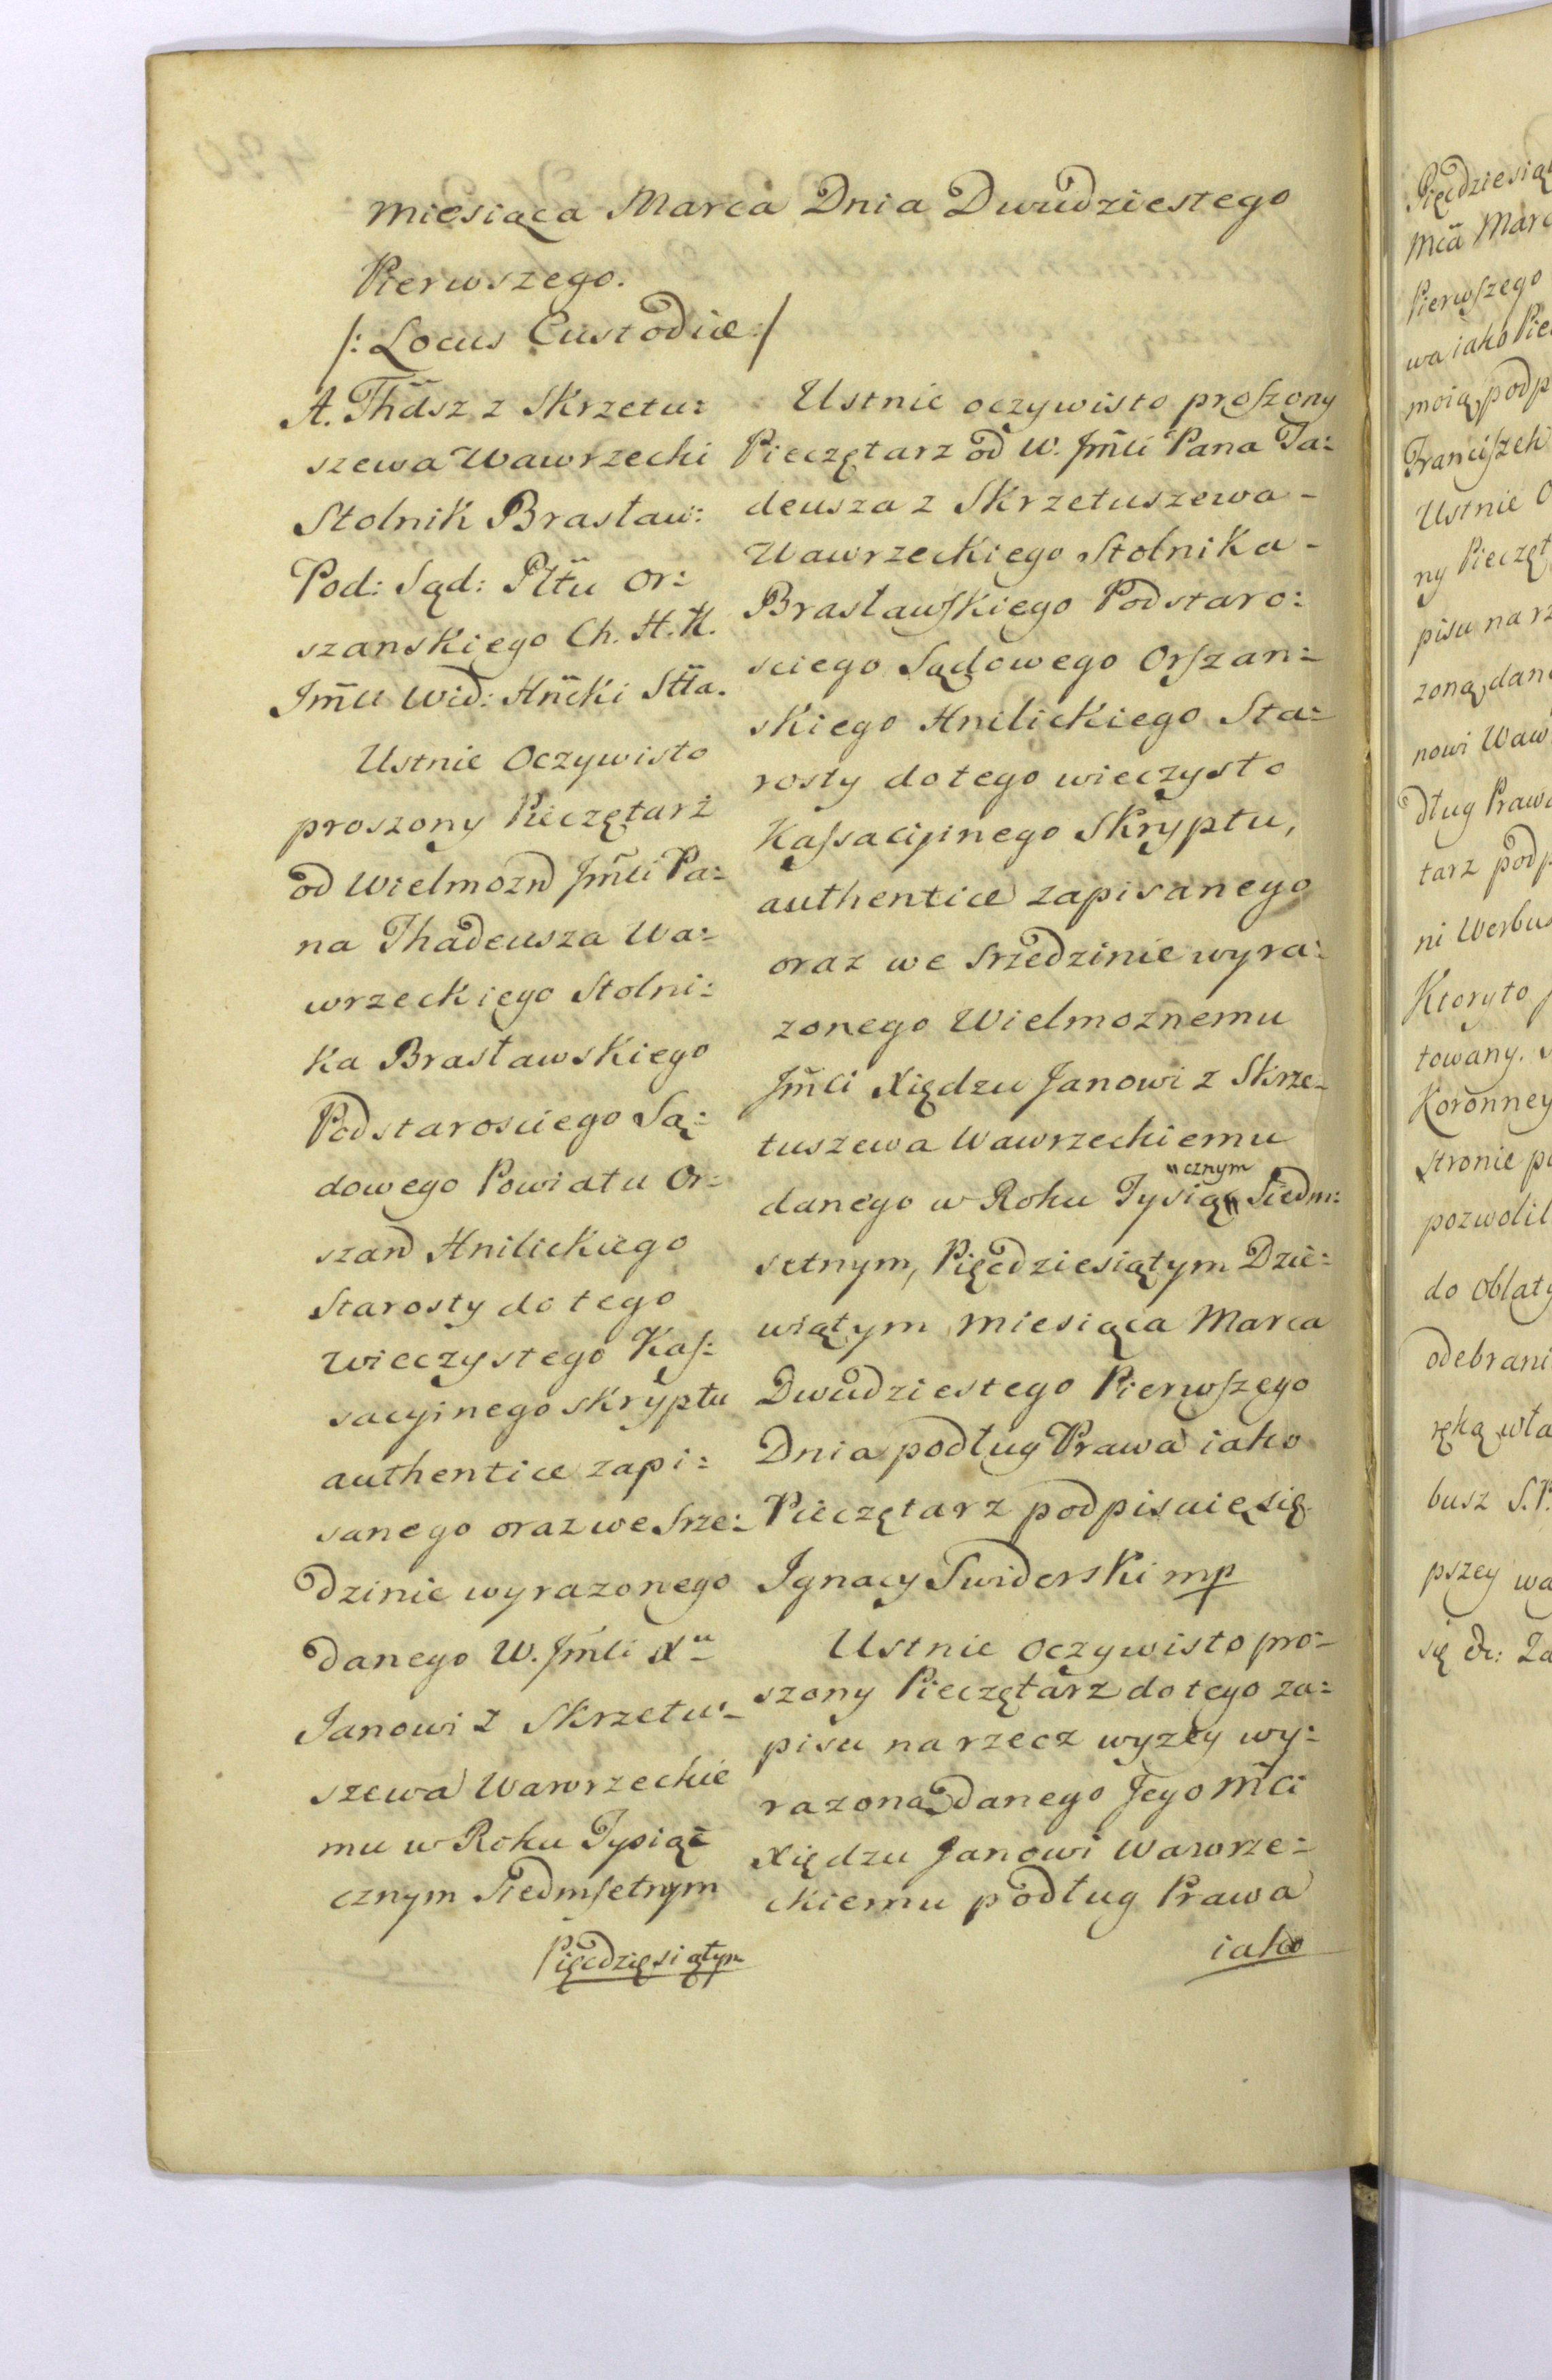 Miesiąca Marca Dnia Dwudziestego
Pierwszego.
/: Locus Custodiæ :/
A. Thdsz z Skrzetu:
szewa Wawrzecki
Stolnik Brasław:
Pod: Sąd: Pttu Or:
szanskiego Ch. H. K.
Jmći Wid: Hncki Stta.
Ustnie Oczywisto
proszony Pieczętarz
od Wielmożn Jmći Pa:
na Thadeusza Wa:
wrzeckiego Stolni:
ka Brasławskiego
Podstarosciego Są:
dowego Powiatu Or:
szan Hnilickiego
Starosty do tego
wieczystego Kas:
sacyinego skryptu
authentice zapi:
sanego oraz we Srze:
dzinie wyrazonego
danego W. Jmći Xu
Janowi z Skrzetu:
szewa Wawrzeckie
mu w Roku Tysiąc
cznym Siedmsetnym
Pięcdziesiątym
Ustnie oczywisto proszony
Pieczętarz od W. Jmći Pana Ta:
deusza z Skrzetuszewa -
Wawrzeckiego Stolnika -
Brasławskiego Podstaro:
sciego Sądowego Orszan:
skiego Hnilickiego Sta:
rosty do tego wieczysto
Kassacyinego Skryptu,
authentice zapisanego
oraz we Srzedzinie wyra:
zonego Wielmoznemu
Jmći Xiędzu Janowi z Skrze:
tuszewa Wawrzeckiemu
danego w Roku Tysiącznym Siedm:
setnym, Pięcdziesiątym Dzie:
wiątym Miesiąca Marca
Dwudziestego Pierwszego
Dnia podług Prawa iako
Pieczętarz podpisuię się
Ignacy Swiderski mp
Ustnie Oczywisto pro:
szony Pieczętarz do tego za:
pisu na rzecz wyzey wy:
razoną danego Jego Mći
Xiędzu Janowi Wawrze:
ckiemu podług Prawa
iako
Pięcdziesiąt
Mca Marc
Pierwszego
wa iako Pie
moią podp
Franciszek
Ustnie O
ny Pieczęt
pisu na rz
zoną dane
nowi Waw
dług Prawa
tarz podp
ni Werbus
Ktory to
towany.
Koronney
stronie
pozwolil
do Oblaty
odebrani
ręką wła
busz S. P.
pszey wa
się &c: Za